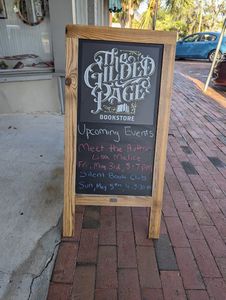 The
Gilded
Page
BOOKSTORE
Upcoming Events
Meet the Author
Lisa Malice
Fri May 3rd 5-7pm
Silent Book Club
Sun May 5th 4-5:30pm